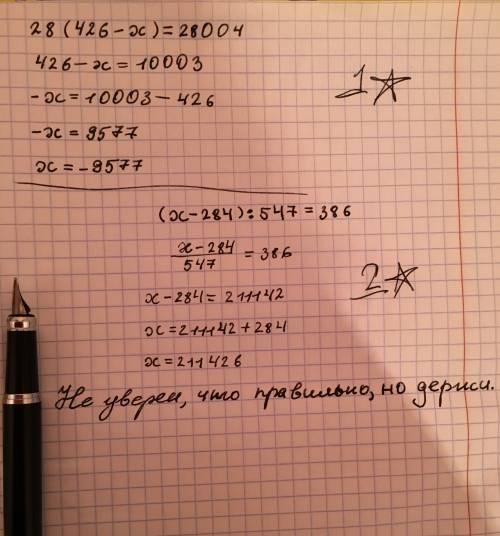 28 (426-x)=28004
426-x=10003
-x=10003-426
-x=9577
x=-9577
1☆
(x-284):547=386
x-284
547
=386
x-284=211142
x=211142+284
x=211426
2☆
Не уверен, что правильно, но держи.